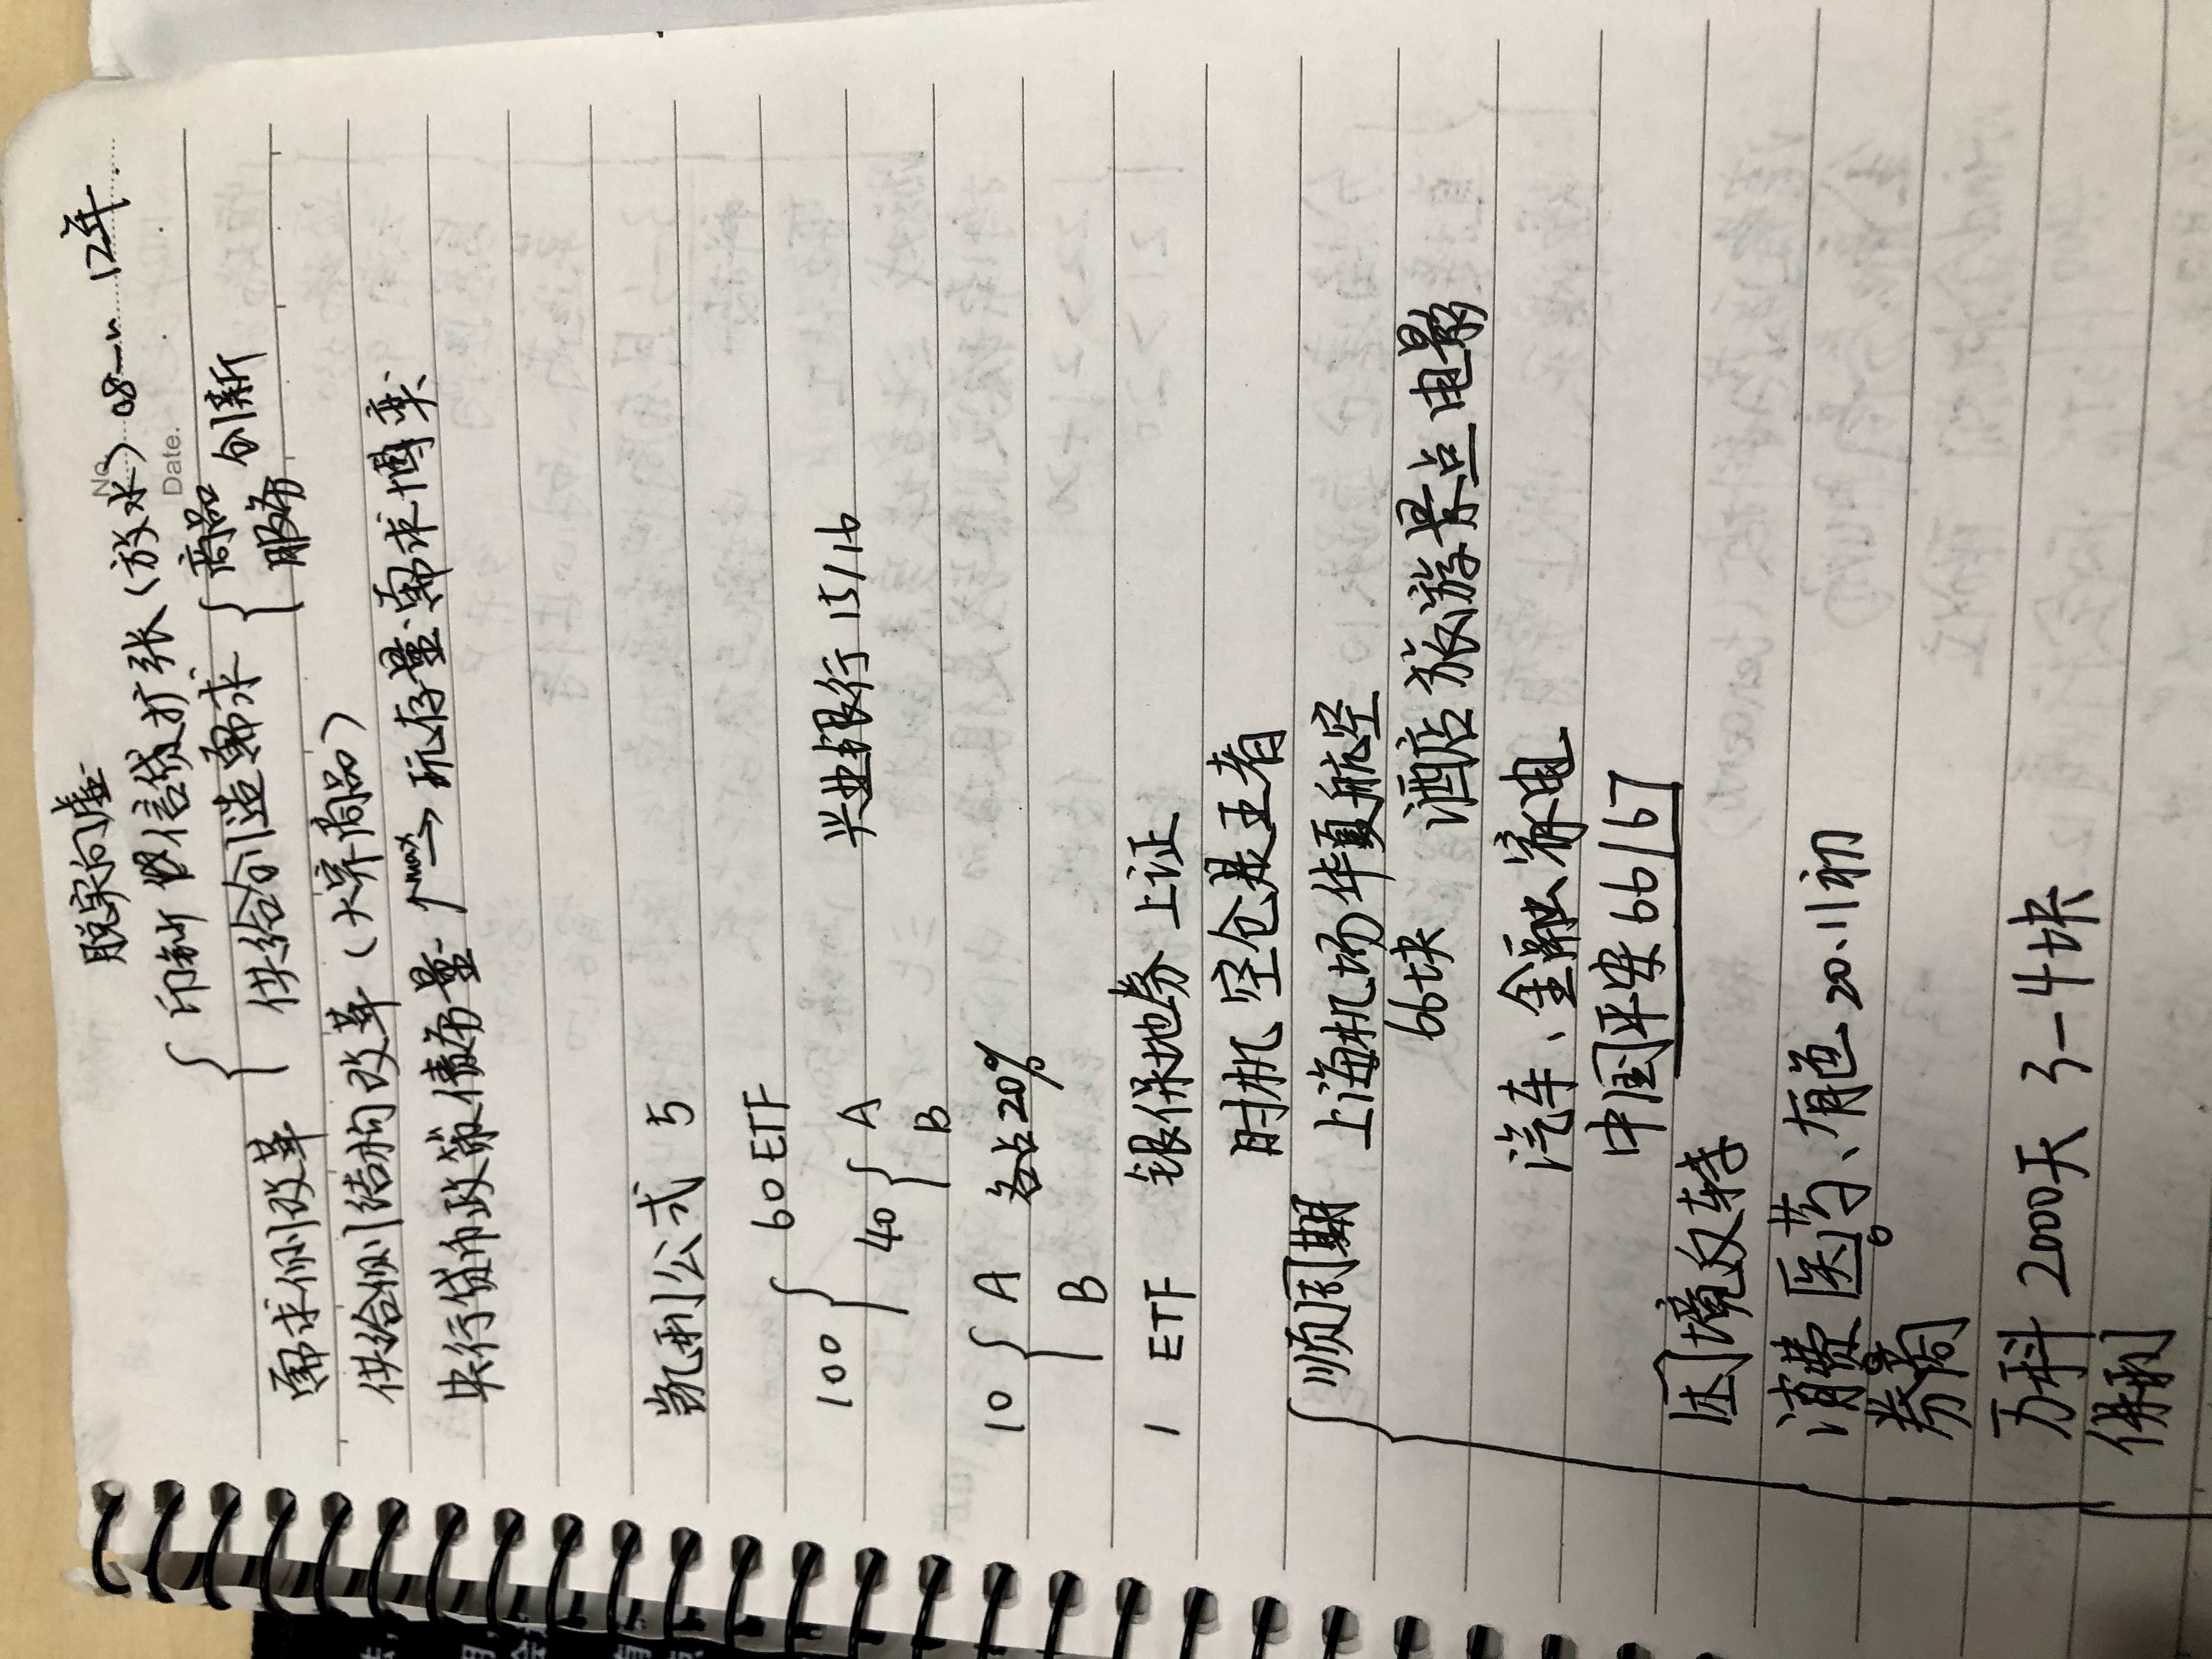 脱实向虚
No.
印钞 信贷扩张（放水）08— 12年.
Date.
需求侧改革 { 供给创造需求 { 商品 服务 创新
供给侧结构改革（大宗商品）
央行货币政策债务量 ↑max → 玩存量需求博奕
凯利公式 5
60 ETF
100 {
40 { A
B
兴业银行 15/16
10 { A 各占20%
B
1 ETF 银保地券 上证
时机 空仓是王者
顺周期 上海机场 华夏航空
66块 酒店 旅游景点 电影
汽车、金融 家电
中国平安 66/67
困境反转
消费 医药、有色 20.11初
券商
万科 2000天 3-4块
保利